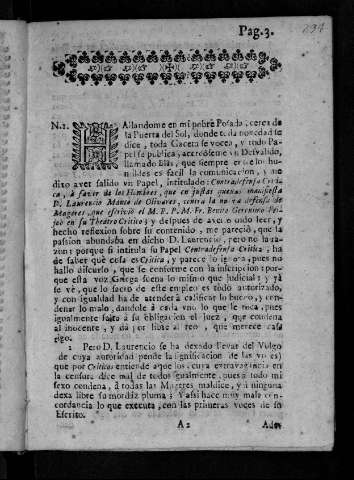 Pag. 3.
294
N.1. HAllandome en mi pobre Posada, cerca de
la Puerta del Sol, donde toda novedad se
dice, toda Gaceta se vocea, y todo Pa-
pel se publica, acercòseme vn Desvalido,
llamado Blàs, que siempre entre los hu-
mildes es facil la comunicacion, y me
dixo aver salido vn Papel, intitulado: Contradefensa Criti-
ca, à favor de los Hombres, que en justas quexas manifiesta
D. Laurencio Manco de Olivares, contra la nueva defensa de
Mugeres, que escriviò el M. R. P. M. Fr. Benito Geronimo Fei-
joò en su Theatro Critico; y despues de averlo oìdo leer, y
hecho reflexion sobre su contenido, me pareciò, que la
passion abundaba en dicho D. Laurencio, pero no la ra-
zon: porque si intitula su Papel Contradefensa Critica, ha
de saber què cosa es Critica, y parece lo ignora, pues no
hallo discurso, que se conforme con la inscripcion: por-
que esta voz Griega suena lo mismo que Judicial; y yà
se vè, que lo recto de este empleo es todo autorizado,
y con igualdad ha de atender à calificar lo bueno, y con-
denar lo malo, dandole à cada vno lo que le toca, pues
igualmente falta à su obligacion el juez, que condena
al inocente, y dà por libre al reo, que merece casti-
go.
2 Pero D. Laurencio se ha dexado llevar del Vulgo
de cuya autoridad pende la significacion de las vozes)
que por Criticos entiende aquellos, cuya extravagancia en
la censura dice mal de todos igualmente, pues à todo mi
sexo condena, à todas las Mugeres maldice, y à ninguna
dexa libre su mordàz pluma; Y assi hace muy mala con-
cordancia lo que executa, con las primeras voces de su
Escrito.
A2 Ador